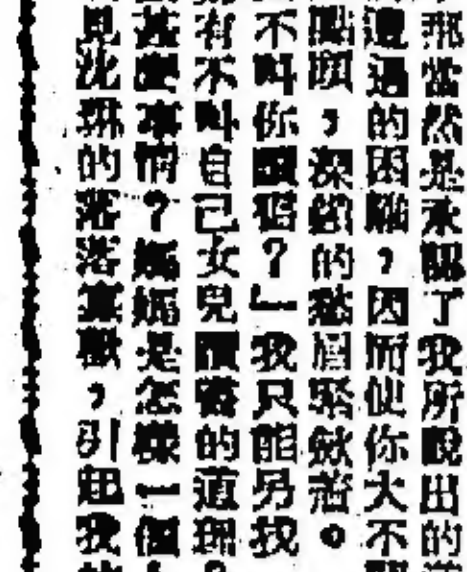 那當然是承認了我所說出的
遭遇的困難，因而使你大不
點頭，深鎖的愁眉緊歛著。
不叫你讀書？」我只能另找
有不叫自己女兒讀書的道理？
甚麼事情？媽媽是怎樣一個
見沈琳的落落寡歡，引起我